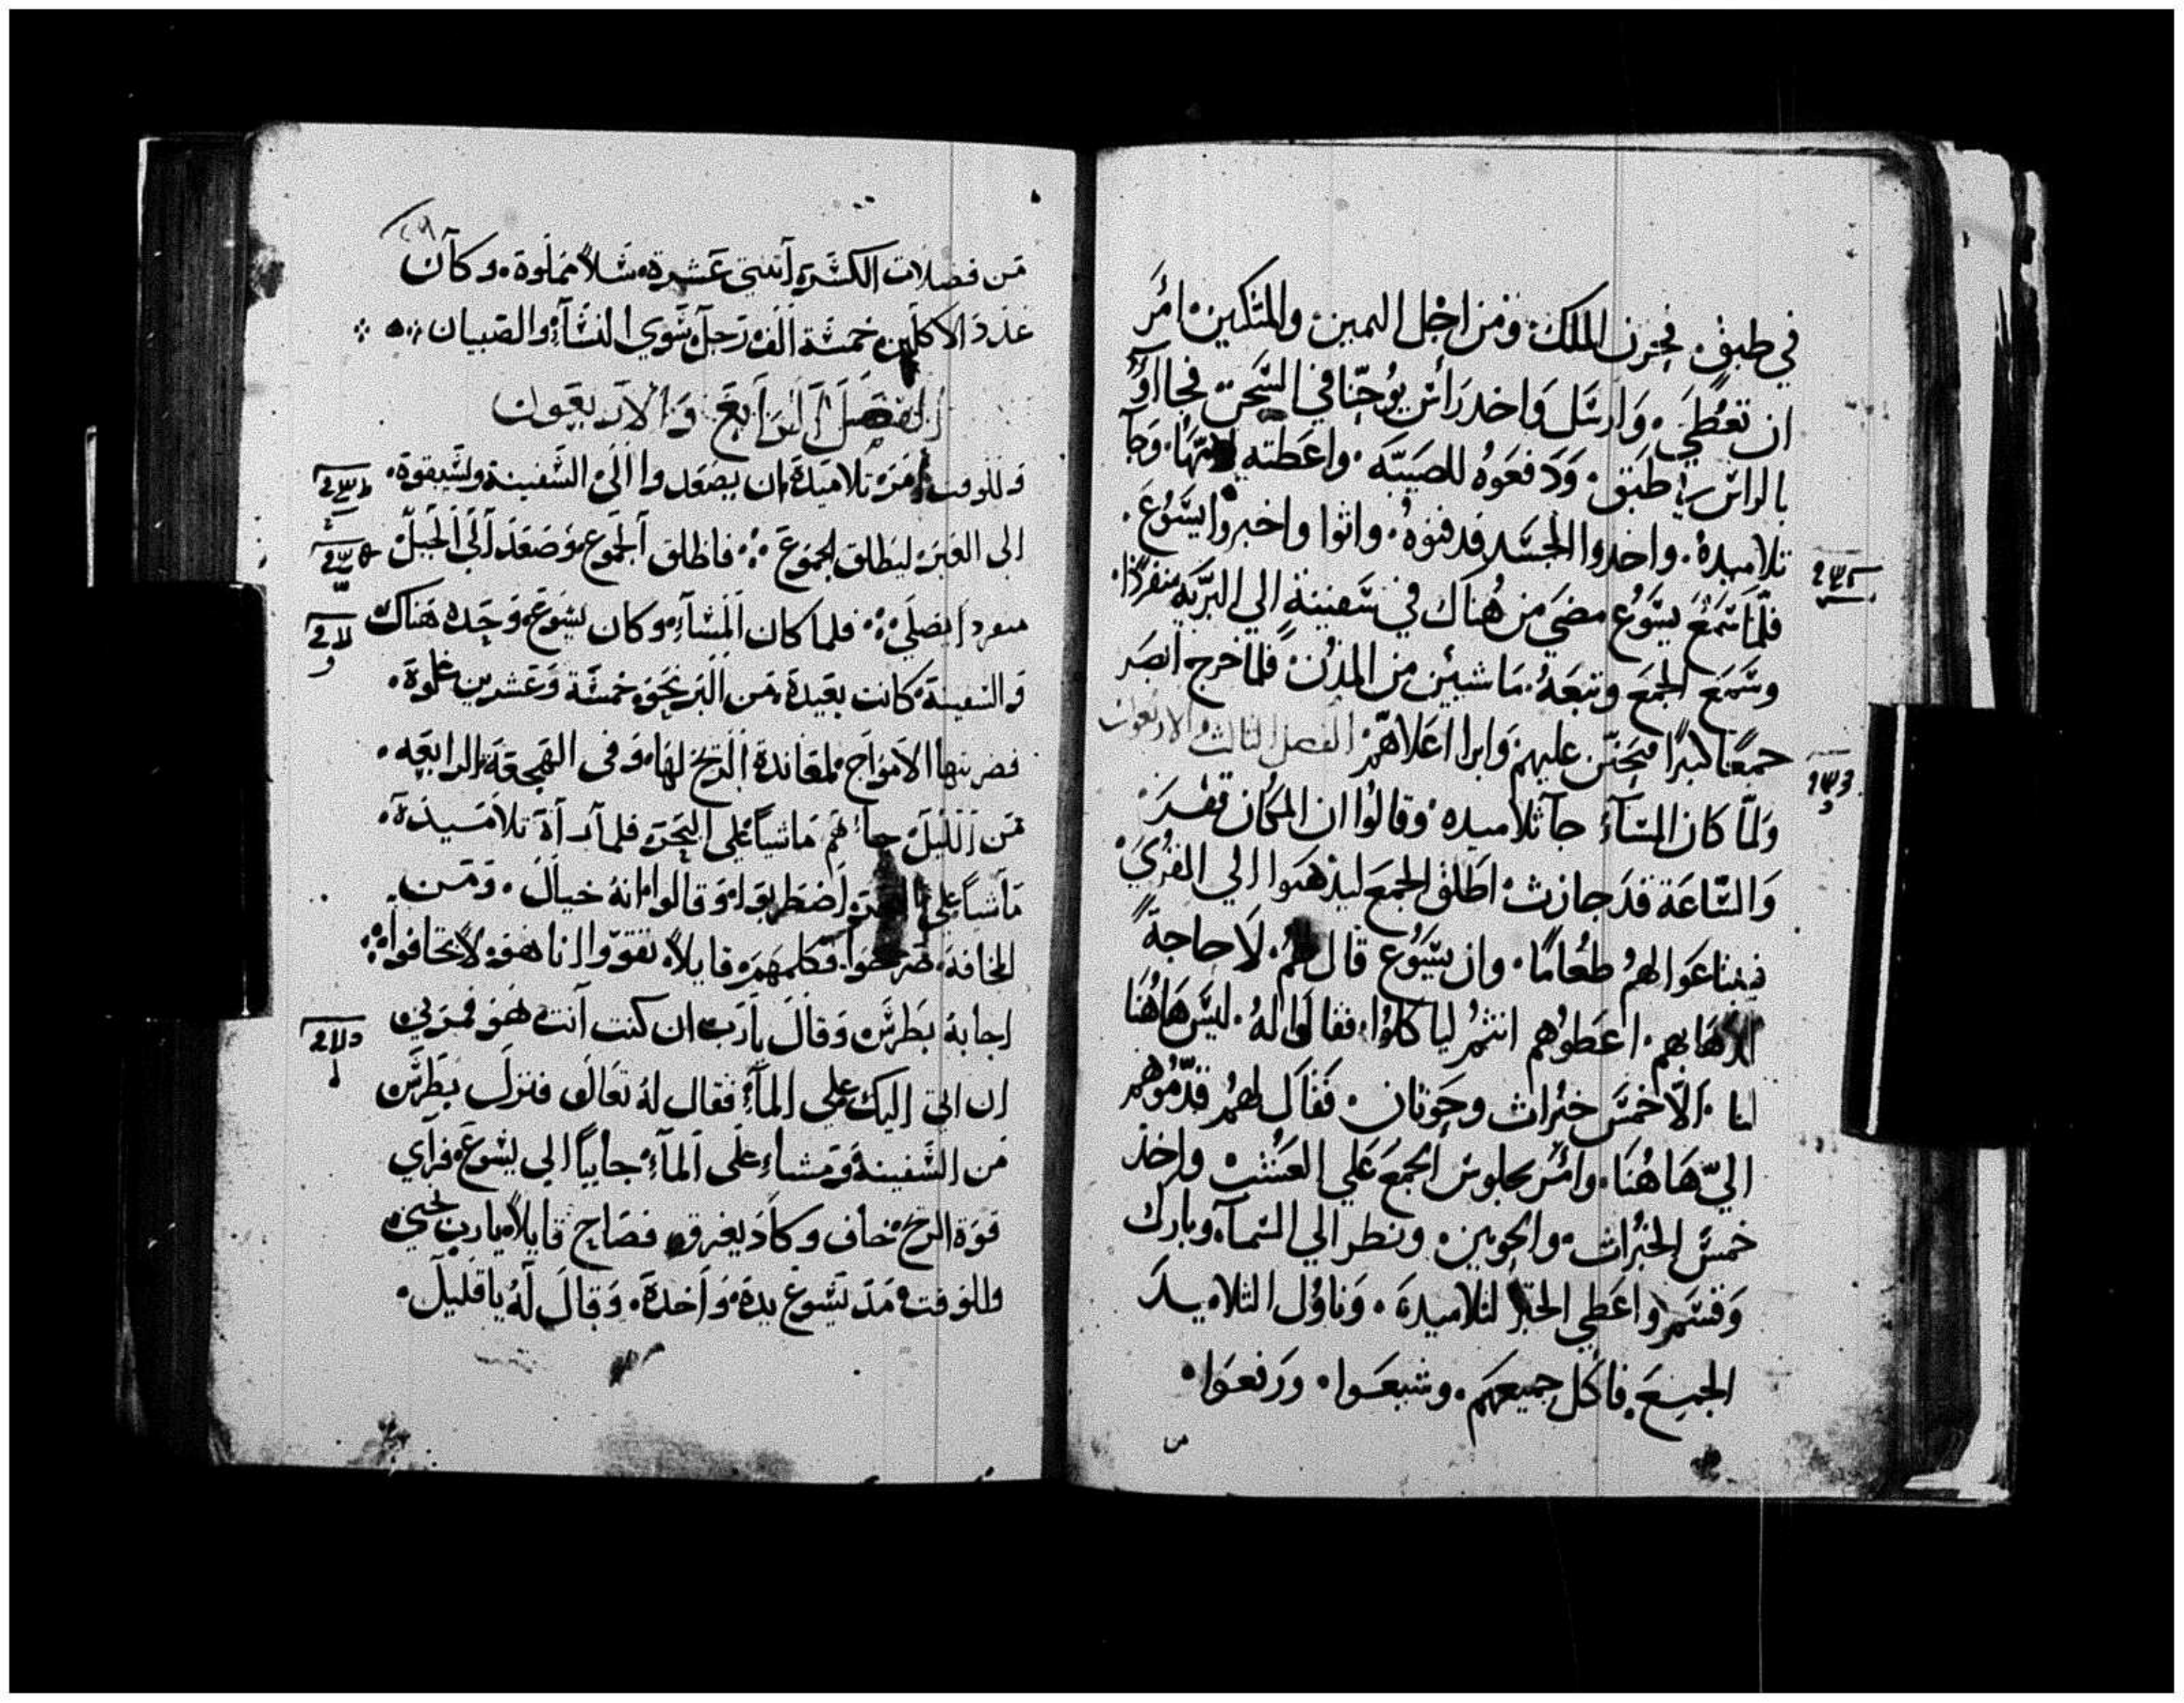 في طبق. فحزن الملك ومن اجل اليمين والمتكين. امَر
ان تعُطَي. وَارسَل وَاخد رَأس يوُحنّا في السَّجن فجااوُ
بالراسَ في طبَق. وَدَفعَوهُ للصَبيَّه. واعَطته لامَّها. وَجآ
تلاميدهُ. واخدوا الجسَد فدفنوهُ. واتوا واخبروا يسَّوُعَ.
فلمّا سَمَعَ يسَّوُع مضيَ من هُناك في سَفينةٍ الي البرَّيَه منفردًا.
وسَمَعَ الجمَع وتبعَهُ. مَاشيين من المدُن. فلمّا خرج ابصَر
جمعًا كبيرًا فتحَنّن عليهم وَابرا اعَلاهمَّ الفصل الثالث والاربعون
وَلمّا كان المسَآءُ جآ تلاميده وقالوُا ان المكَان قفرَ
وَالسَّاعَة قدَ جازت اطَلق الجمَع ليدهَبوا الي القرُيَ
فيبتاعَوا لهمُ طعُامًا. وان يسَّوُع قال لهمُ. لاَ حاجةً
لدهَابهم. اعَطوُهم انتمُ لياكلوُا. فقالوَا لهُ. ليسَ هَاهُنَا
لنا. الّا خمسَ خبُزات وحَوتان. فقَال لهمُ قدّموُهم
اليّ هَاهُنَا. وامَر بجلوس الجمعَ عَلي العشُبْ واخد
خمسَ الخبُزات. والحوتين. ونظر الي السَمآء وبارك
وَقسَم واعَطي الخبُز لتلاميدهَ. وَناوُل التلاميدَ
الجميعَ. فاكَل جميعهَم. وشبعَوا. ورَفعَوا.
من
مَن فضلات الكسَرة اتنتي عَشرة سَلاً مَملوة. وكآن
عَدد الاكلين خمسَة الف رَجلَ سَوي النسَآءِ والصَبيان
الفصَل الرَابعَ وَالاربعَون
وَللوقت امَرَ تلاميدَهَ ان يصَعدوا الَيَ السَفينة وليسَبقوهَ.
الي العَبرَ ليَطلق الجموَعَ. فاطلق الجموَع وَصَعدَ الَيَ الجَبلَ
منفردا يصَلي. فلما كان المَسَآءِ وكان يسَوعَ وَحَدهَ هَناك
وَالسَفينة كانت بعَيدهَ مَن البَر نحَوَ خمسَة وَعَشرين غلوةَ.
فضربتها الامَواج لمعَاندة الرَيح لهَا. وَفي الهجَعَة الرابعَه.
مَن الليَلَ جاءَهَم مَاشياً علي البحَرَ فلما رآهَ تلامَيذهَ.
مَاشياً علي البحَرَ اضَطرَبوا. وَقالوا. انهُ خيالَ. وَمَن
المخافة. صَرخوَا. فكلمهَمَ قايلاً. تقوَوا انا هَوَ لا تخَافوا
اجابهُ بَطرسَ وَقالَ يارَب ان كنت آنت هَوَ فمرَني
ان اتي اليَك علي المآءِ فقال لهُ تعَالَ فنزلَ بطَرسَ
مَن السَفينة وَمَشاءِ علَي المآءِ. جايياً الي يسَوعَ فرآي
قوَة الريَح. فخاف وكاَد يغرق. فصَاح قايلاً يارب نجَيني
وللوَقت مَدَ يسَوعَ يدهَ. وَاخدهَ. وَقالَ لَهُ ياقليلَ.